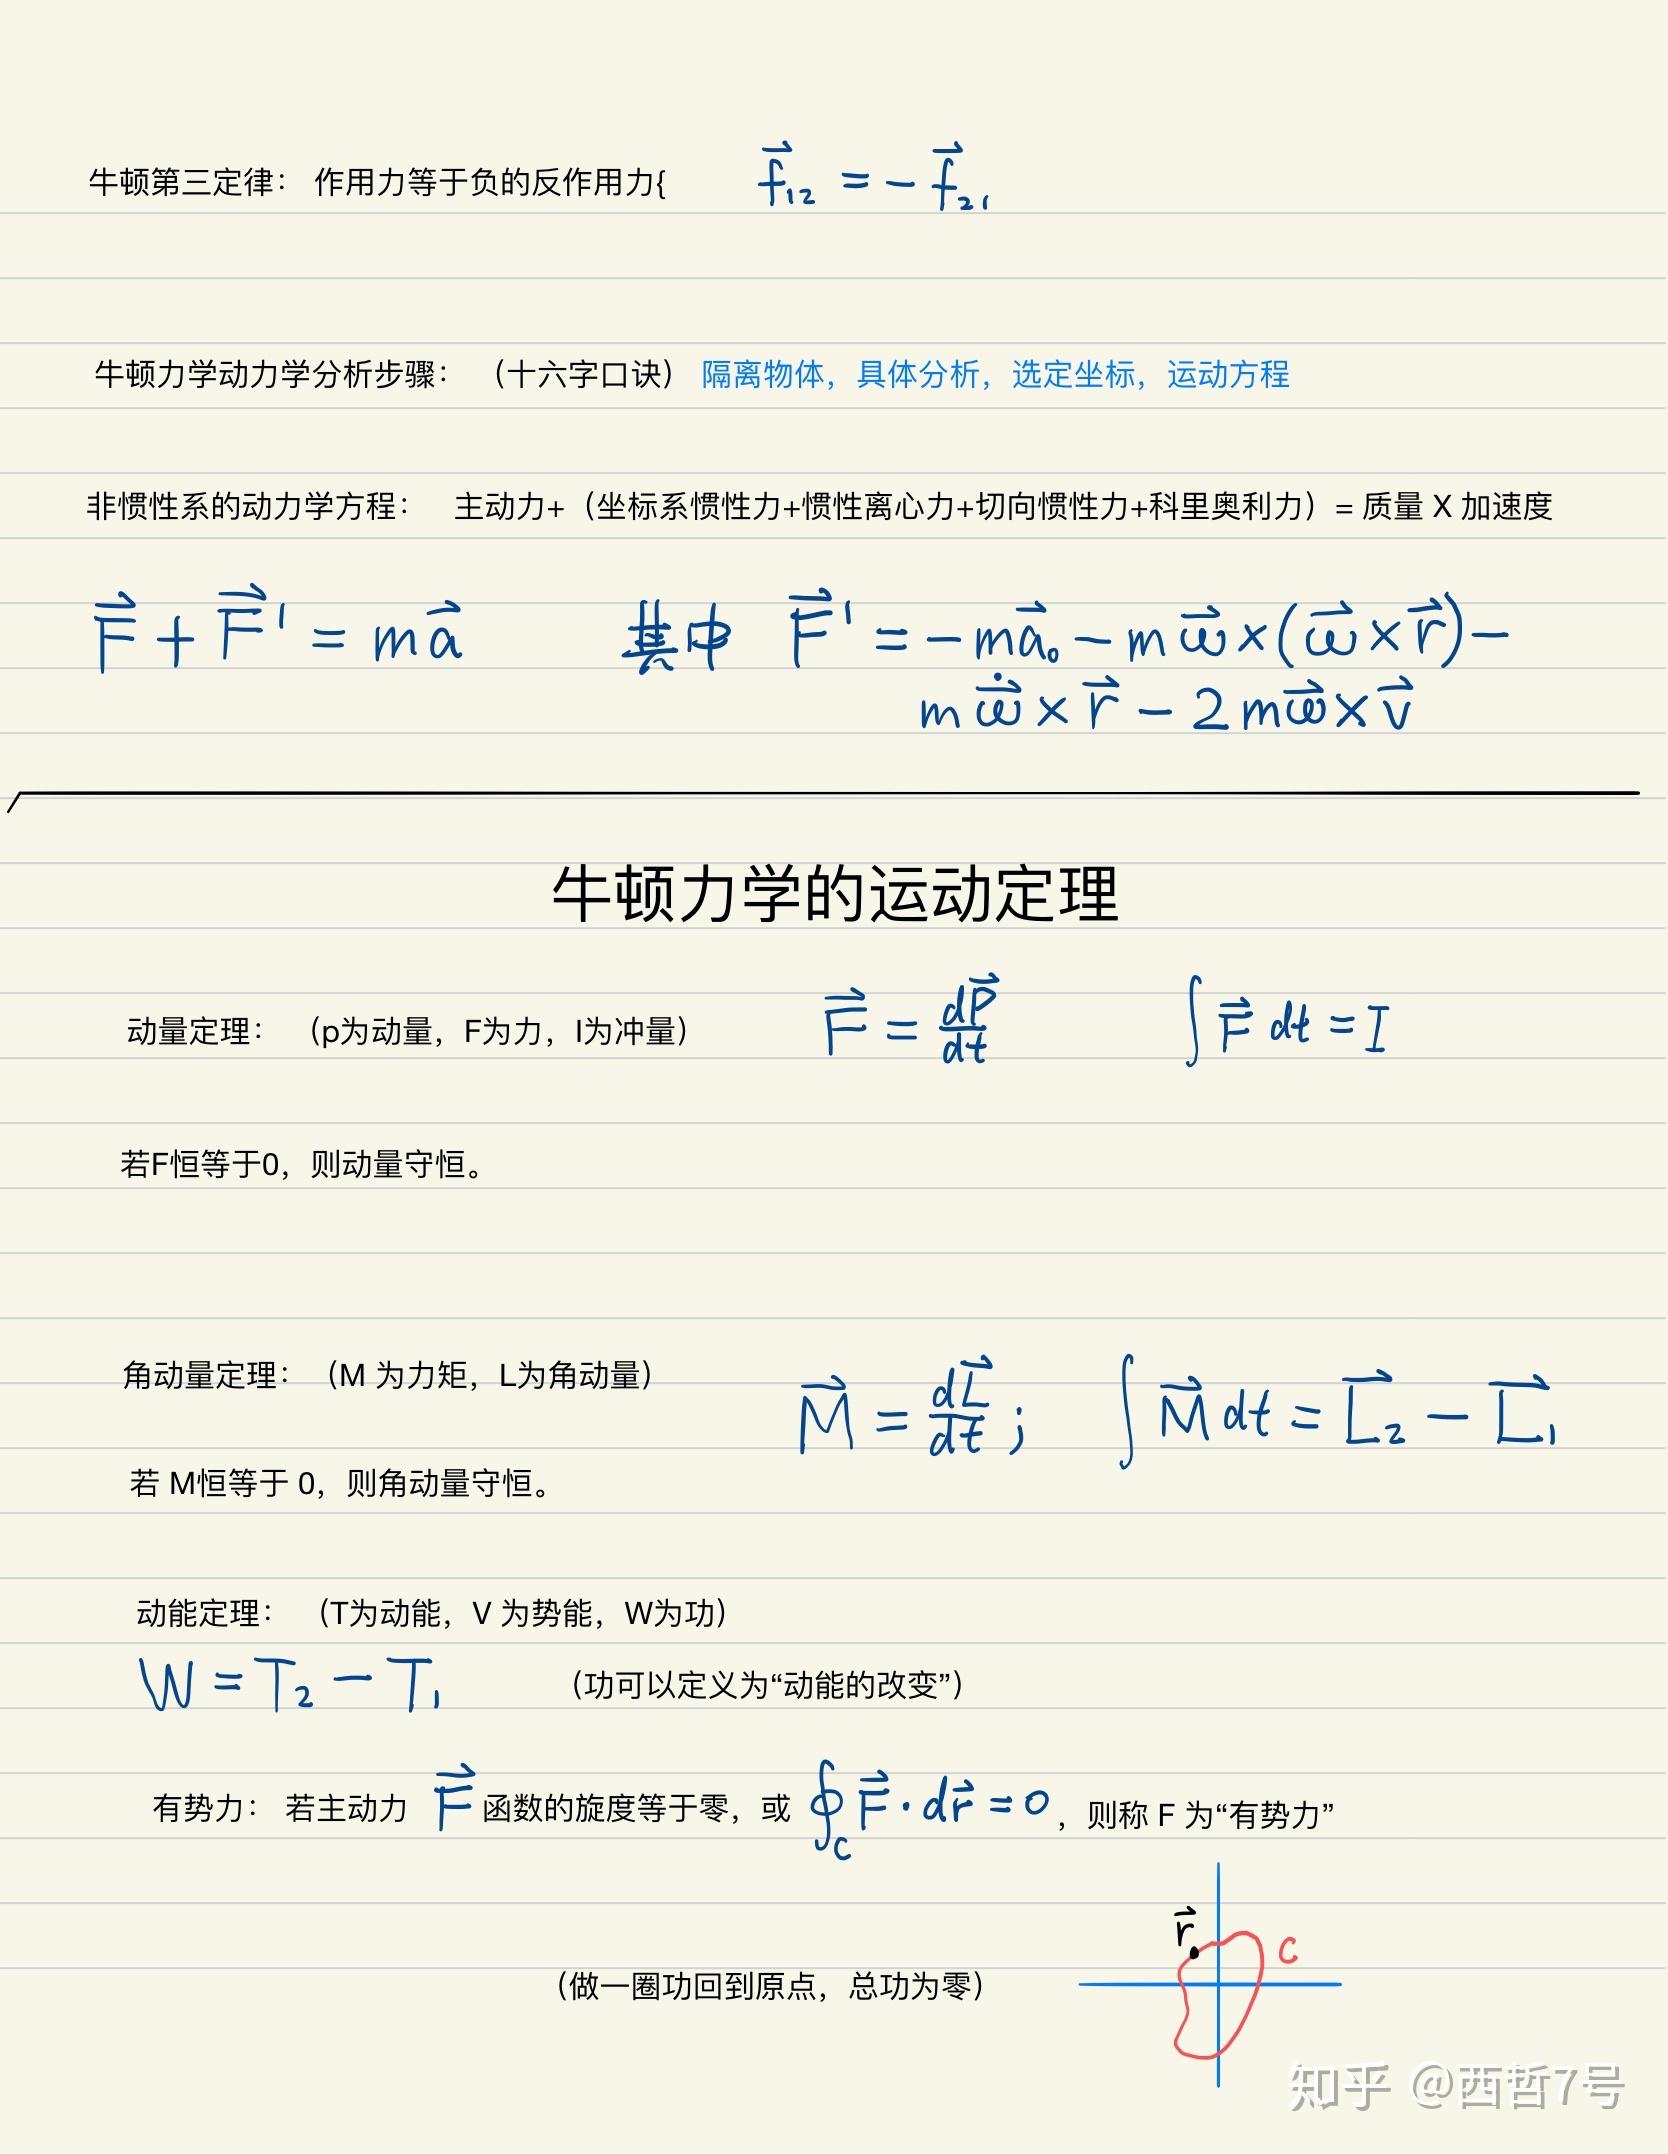 牛顿第三定律： 作用力等于负的反作用力{ f⃗₁₂ = - f⃗₂₁
牛顿力学动力学分析步骤： （十六字口诀）隔离物体，具体分析，选定坐标，运动方程
非惯性系的动力学方程： 主动力+（坐标系惯性力+惯性离心力+切向惯性力+科里奥利力）= 质量 X 加速度
F⃗ + F⃗' = ma⃗ 其中 F⃗' = - ma⃗₀ - mω⃗ × (ω⃗ × r⃗) -
mω⃗̇ × r⃗ - 2mω⃗ × v⃗
牛顿力学的运动定理
动量定理： （p为动量，F为力，I为冲量） F⃗ = dP⃗/dt ∫ F⃗ dt = I
若F恒等于0，则动量守恒。
角动量定理：（M 为力矩，L为角动量） M⃗ = dL⃗/dt ; ∫ M⃗ dt = L⃗₂ - L⃗₁
若 M恒等于 0，则角动量守恒。
动能定理： （T为动能，V 为势能，W为功）
W = T₂ - T₁ （功可以定义为“动能的改变”）
有势力： 若主动力 F⃗ 函数的旋度等于零，或 ∮c F⃗ · dr⃗ = 0 ，则称 F 为“有势力”
r⃗ c
（做一圈功回到原点，总功为零）
知乎 @西哲7号